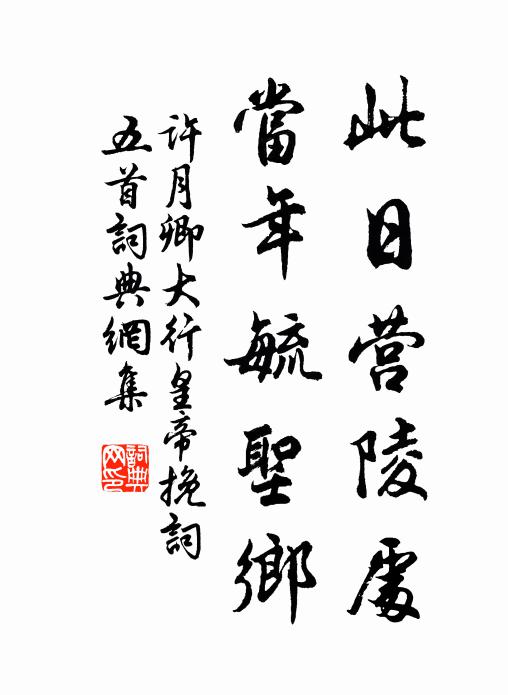 此日营陵處
當年毓聖鄉
許月卿大行皇帝挽詞
五首詞典網集
詞典
网印